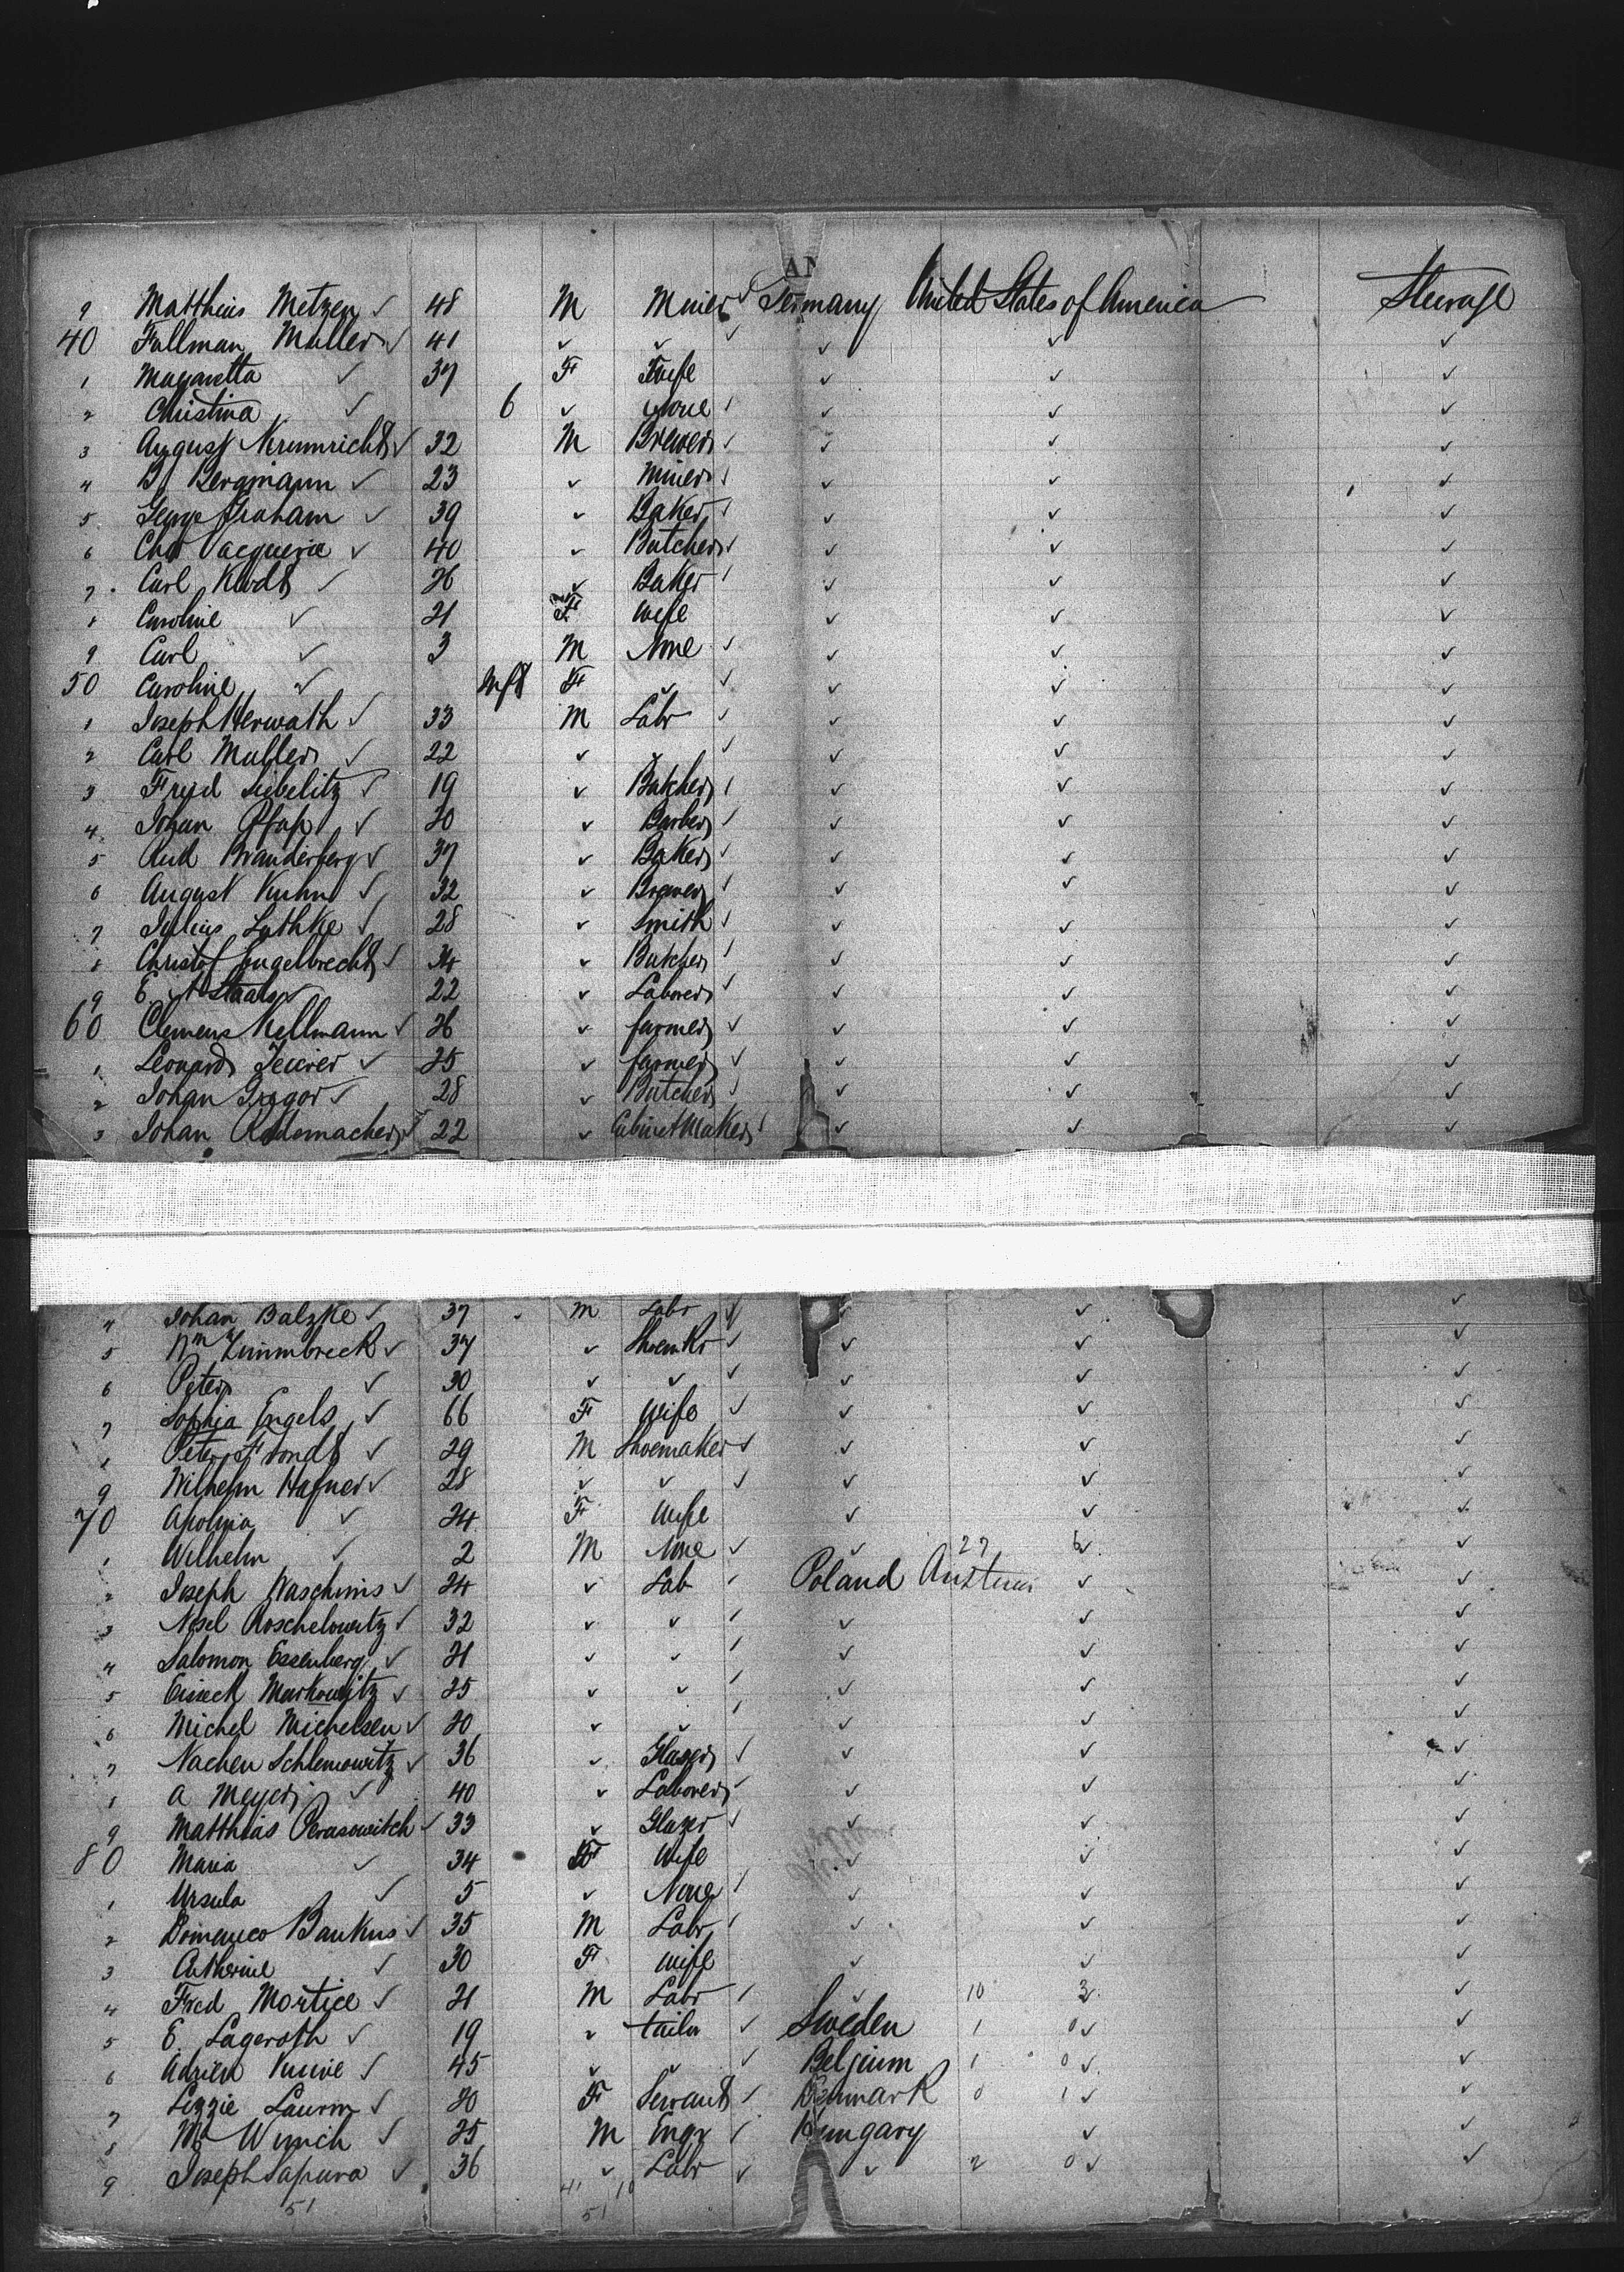 AN
9 Matthias Metzen ✓ 48 M Miner ✓ Germany United States of America Steerage
40 Tullman Muller ✓ 41 ✓ ✓ ✓ ✓ ✓ ✓
1 Magaretta ✓ 37 F Wife ✓ ✓ ✓
2 Christina ✓ 6 ✓ None ✓ ✓ ✓ ✓
3 August ✓ 32 M Brewer ✓ ✓ ✓ ✓
4 B Bergmann ✓ 23 ✓ Miner ✓ ✓ ✓ ✓
5 George Graham ✓ 39 ✓ Baker ✓ ✓ ✓ ✓
6 Chas Vacquerie ✓ 40 ✓ Butcher ✓ ✓ ✓ ✓
7 Carl Klodt ✓ 26 ✓ Baker ✓ ✓ ✓ ✓
8 Caroline ✓ 21 F Wife ✓ ✓ ✓
9 Carl ✓ 3 M None ✓ ✓ ✓ ✓
50 Caroline ✓ Inft F ✓ ✓ ✓ ✓ ✓
1 Joseph Herwath ✓ 33 M Labr ✓ ✓ ✓ ✓
2 Carl Muller ✓ 22 ✓ ✓ ✓ ✓ ✓ ✓
3 Fried Siebelitz ✓ 19 ✓ Butcher ✓ ✓ ✓ ✓
4 Johan Pfaff ✓ 20 ✓ Barber ✓ ✓ ✓ ✓
5 Rud Branderberg ✓ 37 ✓ Baker ✓ ✓ ✓ ✓
6 August Kuhn ✓ 32 ✓ Brewer ✓ ✓ ✓ ✓
7 Julius Luthke ✓ 28 ✓ Smith ✓ ✓ ✓ ✓
8 Christof Engelbrecht ✓ 34 ✓ Butcher ✓ ✓ ✓ ✓
9 E. A Staats ✓ 22 ✓ Laborer ✓ ✓ ✓ ✓
60 Clemens Kellmann ✓ 26 ✓ farmer ✓ ✓ ✓ ✓
1 Leonard ✓ 25 ✓ farmer ✓ ✓ ✓ ✓
2 Johan Gregor ✓ 28 ✓ Butcher ✓ ✓ ✓ ✓
3 Johan Rademacher ✓ 22 ✓ Cabinet Maker ✓ ✓ ✓ ✓
4 Johan Balzke ✓ 37 M Labr ✓ ✓ ✓
5 Wm Zimmbreck ✓ 37 ✓ Shoemkr ✓ ✓ ✓ ✓
6 Peter ✓ 30 ✓ ✓ ✓ ✓ ✓ ✓
7 Sophia Engels ✓ 66 F Wife ✓ ✓ ✓ ✓
8 Peter Arondt ✓ 29 M Shoemaker ✓ ✓ ✓ ✓
9 Wilhelm Hafner ✓ 28 ✓ ✓ ✓ ✓ ✓ ✓
70 Apolina ✓ 24 F Wife ✓ ✓ ✓
1 Wilhelm ✓ 2 M None ✓ ✓ 27 6 ✓ ✓
2 Joseph Waschinis ✓ 24 ✓ Lab ✓ Poland Austria ✓ ✓
3 Nisel Roschelowitz ✓ 32 ✓ ✓ ✓ ✓ ✓ ✓
4 Salomon Essenberg ✓ 21 ✓ ✓ ✓ ✓ ✓ ✓
5 Markowitz ✓ 25 ✓ ✓ ✓ ✓ ✓ ✓
6 Michel Michelsen ✓ 20 ✓ ✓ ✓ ✓ ✓ ✓
7 Nachen Schlemowitz ✓ 36 ✓ Glazer ✓ ✓ ✓ ✓
8 A Meyer ✓ 40 ✓ Laborer ✓ ✓ ✓ ✓
9 Matthias Perasowitch ✓ 33 ✓ Glazer ✓ ✓ ✓ ✓
80 Maria ✓ 34 F Wife ✓ ✓ ✓
1 Ursula ✓ 5 ✓ None ✓ ✓ ✓ ✓
2 Domenico Baukus ✓ 35 M Labr ✓ ✓ ✓ ✓
3 Catherine ✓ 30 F Wife ✓ ✓ ✓
4 Fred Mortice ✓ 21 M Labr ✓ ✓ 10 3 ✓
5 E. Lageroth ✓ 19 ✓ tailor ✓ Sweden 1 0 ✓ ✓
6 Adrien ✓ 45 ✓ ✓ ✓ Belgium 1 0 ✓ ✓
7 Lizzie Laurin ✓ 20 F Servant ✓ Denmark 0 1 ✓ ✓
8 M Wunich ✓ 25 M Engr ✓ Hungary ✓ ✓
9 Joseph Sapura ✓ 36 ✓ Labr ✓ ✓ 2 0 ✓ ✓
51 41 10
51